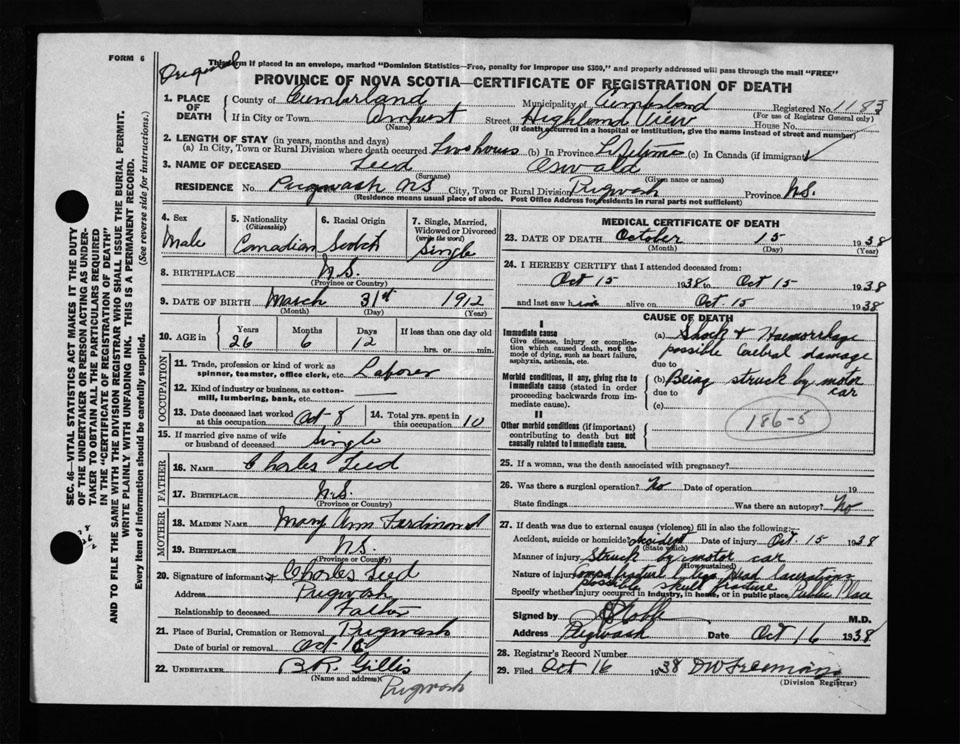 FORM 6
Original
This form if placed in an envelope, marked "Dominion Statistics—Free, penalty for improper use $300," and properly addressed will pass through the mail "FREE"
PROVINCE OF NOVA SCOTIA—CERTIFICATE OF REGISTRATION OF DEATH
1. PLACE OF DEATH County of Cumberland Municipality of Cumberland Registered No. 1183
(For use of Registrar General only)
If in City or Town Amherst Street Highland View House No.
(Name) (If death occurred in a hospital or institution, give the name instead of street and number)
2. LENGTH OF STAY (in years, months and days)
(a) In City, Town or Rural Division where death occurred Two hours (b) In Province Lifetime (c) In Canada (if immigrant)
3. NAME OF DECEASED Teed Oswald
(Surname) (Given name or names)
RESIDENCE No. Pugwash NS City, Town or Rural Division Pugwash Province N.S.
(Residence means usual place of abode. Post Office Address for residents in rural parts not sufficient)
4. Sex Male
5. Nationality (Citizenship) Canadian
6. Racial Origin Scotch
7. Single, Married, Widowed or Divorced (write the word) Single
8. BIRTHPLACE N.S.
(Province or Country)
9. DATE OF BIRTH March 31st 1912
(Month) (Day) (Year)
10. AGE in Years 26 Months 6 Days 12 If less than one day old hrs. or min.
OCCUPATION
11. Trade, profession or kind of work as spinner, teamster, office clerk, etc. Laborer
12. Kind of industry or business, as cotton-mill, lumbering, bank, etc. —
13. Date deceased last worked at this occupation Oct 8
14. Total yrs. spent in this occupation 10
15. If married give name of wife or husband of deceased Single
FATHER
16. NAME Charles Teed
17. BIRTHPLACE N.S.
(Province or Country)
MOTHER
18. MAIDEN NAME Mary Ann Ferdinand
19. BIRTHPLACE N.S.
(Province or Country)
20. Signature of informant Charles Teed
Address Pugwash
Relationship to deceased Father
21. Place of Burial, Cremation or Removal Pugwash
Date of burial or removal Oct 16
22. UNDERTAKER B.R. Gillis
(Name and address)
Pugwash
MEDICAL CERTIFICATE OF DEATH
23. DATE OF DEATH October 15 1938
(Month) (Day) (Year)
24. I HEREBY CERTIFY that I attended deceased from:
Oct 15 1938 to Oct 15 1938
and last saw him alive on Oct 15 1938
CAUSE OF DEATH
I
Immediate cause
Give disease, injury or complication which caused death, not the mode of dying, such as heart failure, asphyxia, asthenia, etc.
(a) Shock & Haemorrhage
possible Cerebral damage
due to
Morbid conditions, if any, giving rise to immediate cause (stated in order proceeding backwards from immediate cause).
(b) Being struck by motor car
due to
(c)
186-5
II
Other morbid conditions (if important) contributing to death but not causally related to immediate cause.
25. If a woman, was the death associated with pregnancy?
26. Was there a surgical operation? No Date of operation 19
State findings Was there an autopsy? No
27. If death was due to external causes (violence) fill in also the following:—
Accident, suicide or homicide? accident Date of injury Oct 15 1938
(State which)
Manner of injury Struck by motor car
(How sustained)
Nature of injury Compd fracture legs Head lacerations
possible skull fracture
Specify whether injury occurred in industry, in home, or in public place Public Place
Signed by M.D.
Address Pugwash Date Oct 16 1938
28. Registrar's Record Number
29. Filed Oct 16 1938 DW Freeman
(Division Registrar)
SEC. 46—VITAL STATISTICS ACT MAKES IT THE DUTY OF THE UNDERTAKER OR PERSON ACTING AS UNDERTAKER TO OBTAIN ALL THE PARTICULARS REQUIRED IN THE "CERTIFICATE OF REGISTRATION OF DEATH"
AND TO FILE THE SAME WITH THE DIVISION REGISTRAR WHO SHALL ISSUE THE BURIAL PERMIT.
WRITE PLAINLY WITH UNFADING INK. THIS IS A PERMANENT RECORD.
Every item of information should be carefully supplied. (See reverse side for instructions.)